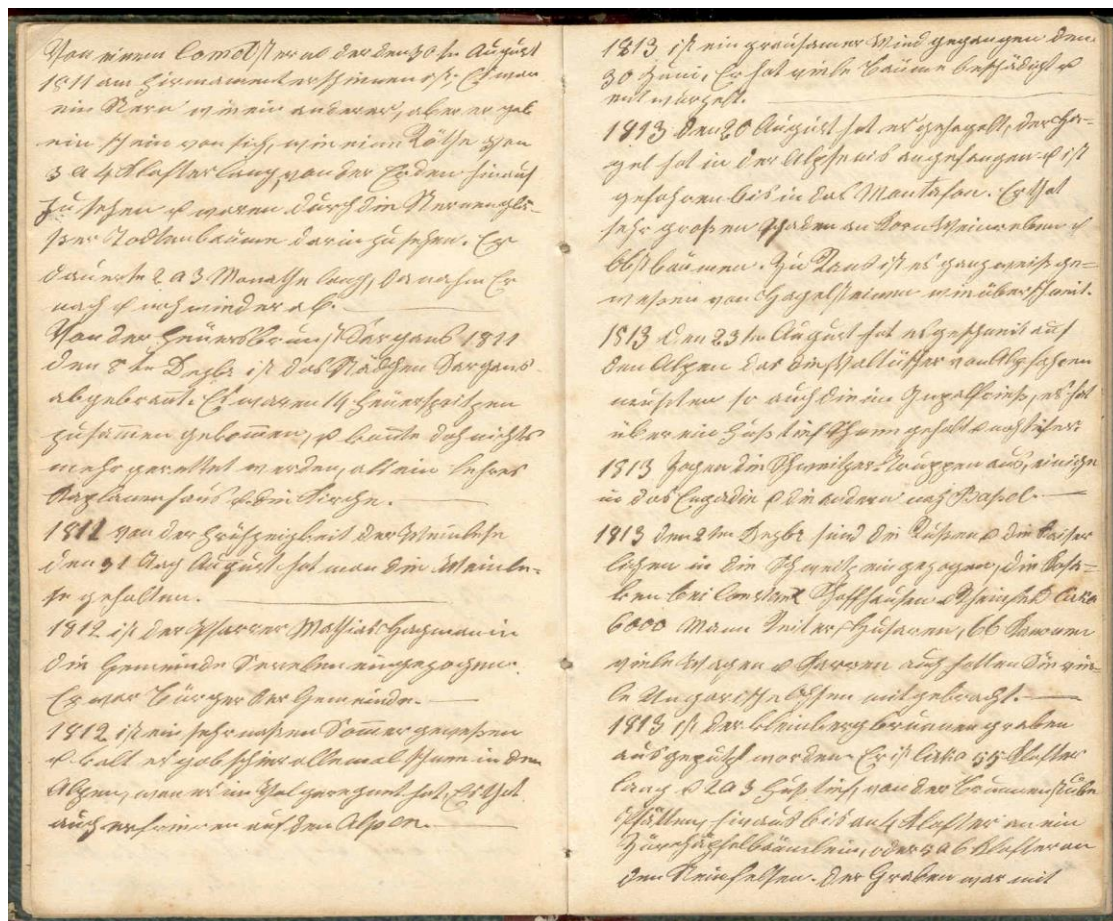 Von einem Comet Stern der den 30 ten August
1811 am Firmament erschienen ist. Es war
ein Stern wie ein anderer, aber er gab
ein Schein von sich, wie eine Röthe von
3 a 4 Klafter lang, von der Erden hinauf
zu sehen & waren durch die Sternenglä-
ser Todtenbäume darin zu sehen. Er
dauerte 2 a 3 Monathe lang, da nahm Er
nach & nach wieder ab.
Von der Feuersbrunst Sargans 1811
den 8 te Dezbr ist das Städchen Sargans
abgebrant. Es waren 14 Feuerspritzen
zusammen gekommen, & konte doch nichts
mehr gerettet werden, als ein lehres
Kaplanenhaus & die Kirche.
1811 von der Frühzeigkeit der Weinlese
den 31 Tag August hat man den Weinle-
se gehalten.
1812 ist der Pfarrer Mathias Hagman in
die Gemeinde Sevelen eingezogen.
Er war Bürger der Gemeinde.
1812 ist ein sehr naßen Sommer gewesen
& kalt es gab schier allemal Schnee in den
Alpen, wen es im Thal geregnet hat, Es that
auch erfrieren auf den Alpen.
1813 ist ein grausamer Wind gegangen den
30 Juni, Er hat viele Bäume beschädigt &
entwurzelt.
1813 den 20 August hat es gehagelt, der Ha-
gel hat in der Alp angefangen & ist
gefahren bis in das Montafon. Er that
sehr großen Schaden an Korn Weinreben &
Obstbäumen. Zu Land ist es ganz weiß ge-
wesen von Hagelsteinen wie überschneit.
1813 den 23 ten August hat es geschneit auf
den Alpen das die von Alp fahren
mußten so auch die im, es hat
über ein Fuß tief Schnee gehabt & noch tiefer.
1813 Zogen die Schweitzer Truppen aus, einige
in das Engadin & die andern nach Basel.
1813 den 2 ten Dezbr sind die Rußen & die Kaiser
lichen in die Schweitz eingezogen, die Kosa-
ken bei Constanz Schaffhausen & Rheinfeld Cirka
6000 Mann Reiter, Husaren, 66 Kanonen
viele Wagen & Karren auch hatten Sie vie-
le Ungarische Ochsen mit gebracht.
1813 ist der Weinbergbrunnengraben
ausgeputzt worden. Er ist Cirka 55 Klafter
lang & 2 a 3 Fuß tief, von der Brunnenstube
hinaus bis an 4 Klafter an ein
oder 5 a 6 Klafter an
den Steinfelsen. Der Graben war mit